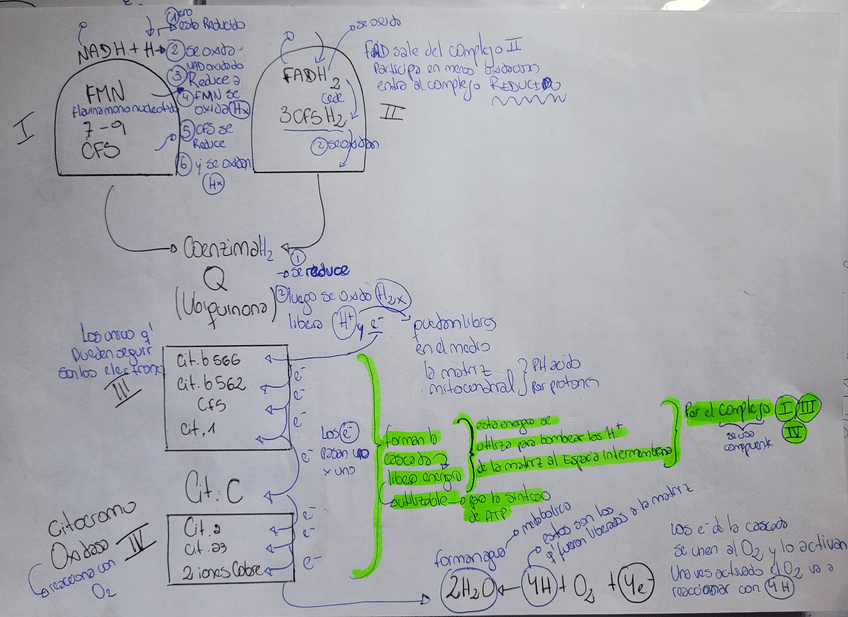 ① pero
esta Reducido
NADH + H+
② se oxida
③ NAD oxidado
Reduce a
④ FMN se
oxida (Hx)
⑤ CFS se
Reduce
⑥ y se oxidan
(Hx)
I
FMN
Flavina mononucleotido
7-9
CFS
se oxida
FADH2
cede
3CFSH2
② se oxidan
II
FAD sale del complejo II
Participa en menos oxidacion
entra al complejo REDUCIDO
Coenzima H2
Q
(Ubiquinona)
①
→ se reduce
② luego se oxida (H2x)
libera (H+) y e-
quedan libres
en el medio
la matriz
mitocondrial
PH acido
Por protones
Los unicos q'
Pueden seguir
son los electrones
III
Cit. b 566
Cit. b 562
CFS
Cit. 1
e-
e-
e-
e-
Los e-
pasan uno
x uno
forman la
cascada
libera energia
utilizable → para la sintesis
de ATP
esta energia se
utiliza para bombear los H+
de la matriz al Espacio Intermembrana
Por el complejo I III
IV
se usa
como puente
Cit. C
Citocromo
Oxidasa IV
reacciona con
O2
Cit. a
Cit. a3
2 iones Cobre
e-
e-
e-
forman agua → metabolica
estos son los
q' fueron liberados a la matriz
2H2O ← 4H + O2 + 4e-
Los e- de la cascada
se unen al O2 y lo activan
Una ves activado el O2 va a
reaccionar con 4H